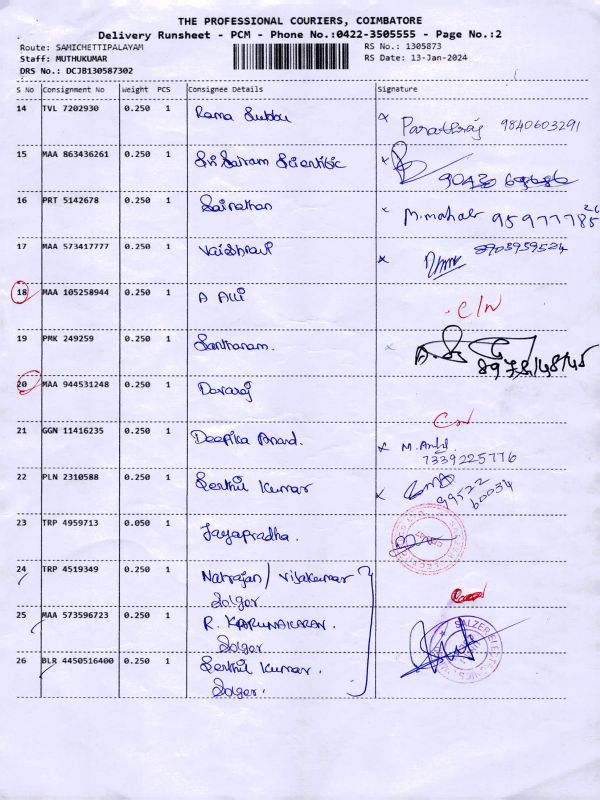 THE PROFESSIONAL COURIERS, COIMBATORE
Delivery Runsheet - PCM - Phone No.:0422-3505555 - Page No.:2
Route: SAMICHETTIPALAYAM
RS No.: 1305873
Staff: MUTHUKUMAR
RS Date: 13-Jan-2024
DRS No.: DCJB130587302
S No Consignment No Weight PCS Consignee Details Signature
14 TVL 7202930 0.250 1 Rama Subbu x 9840603291
15 MAA 863436261 0.250 1 Sri Sairam Scientific x
16 PRT 5142678 0.250 1 Sainathan x
17 MAA 573417777 0.250 1 Vaishnavi x
18 MAA 105258944 0.250 1 A Alli C/N
19 PMK 249259 0.250 1 Santhanam. x
20 MAA 944531248 0.250 1 Devaraj
CN
21 GGN 11416235 0.250 1 Deepika Anand. x
7339225776
22 PLN 2310588 0.250 1 Senthil Kumar x
99522
60034
23 TRP 4959713 0.050 1 Jayapradha.
24 TRP 4519349 0.250 1 Natrajan / Vijakumar
Solger
25 MAA 573596723 0.250 1 R. KARUNAKARAN.
Solger
26 BLR 4450516400 0.250 1 Senthil Kumar.
Solger.
SALZER ELECTRONICS